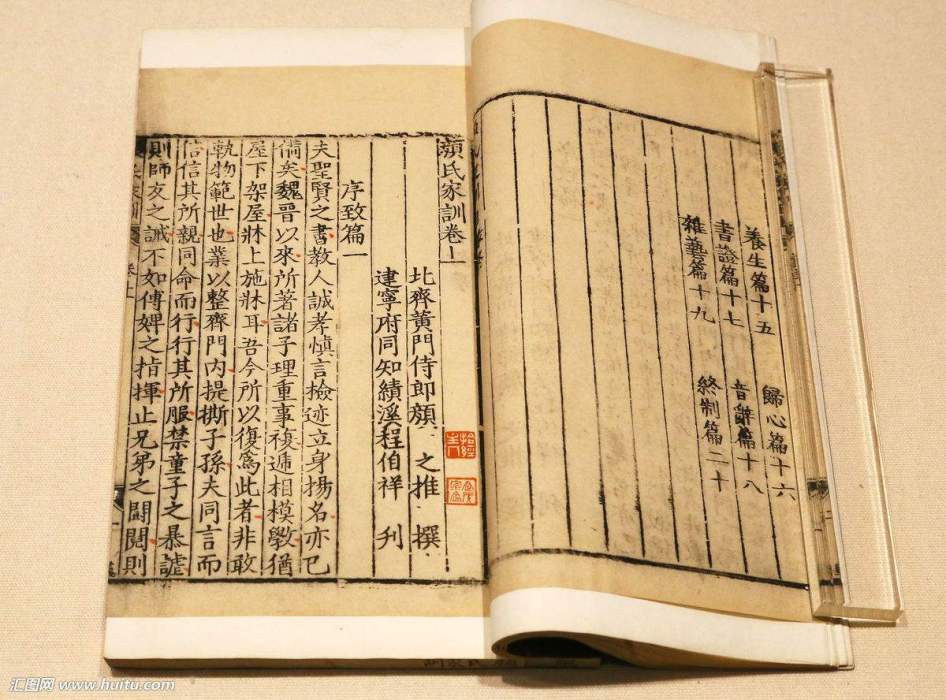 養生篇十五 歸心篇十六
書證篇十七 音辭篇十八
雜藝篇十九 終制篇二十
顏氏家訓卷上
北齊黃門侍郎顏 之推 撰
建寧府同知績溪程伯祥 刋
序致篇一
夫聖賢之書教人誠孝慎言檢迹立身揚名亦已
備矣魏晉以來所著諸子理重事複遞相模斆猶
屋下架屋牀上施牀耳吾今所以復爲此者非敢
軌物範世也業以整齊門內提撕子孫夫同言而
信信其所親同命而行行其所服禁童子之暴謔
則師友之誡不如傅婢之指揮止兄弟之鬪鬩則
汇图网 www.huitu.com